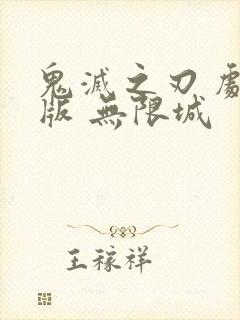 鬼滅之刃 劇
版 無限城
王稼祥